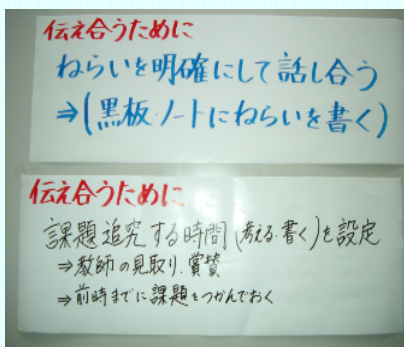 伝え合うために
ねらいを明確にして話し合う
⇒(黒板・ノートにねらいを書く)
伝え合うために
課題追究する時間(考える・書く)を設定
⇒教師の見取り、賞賛
⇒前時までに課題をつかんでおく